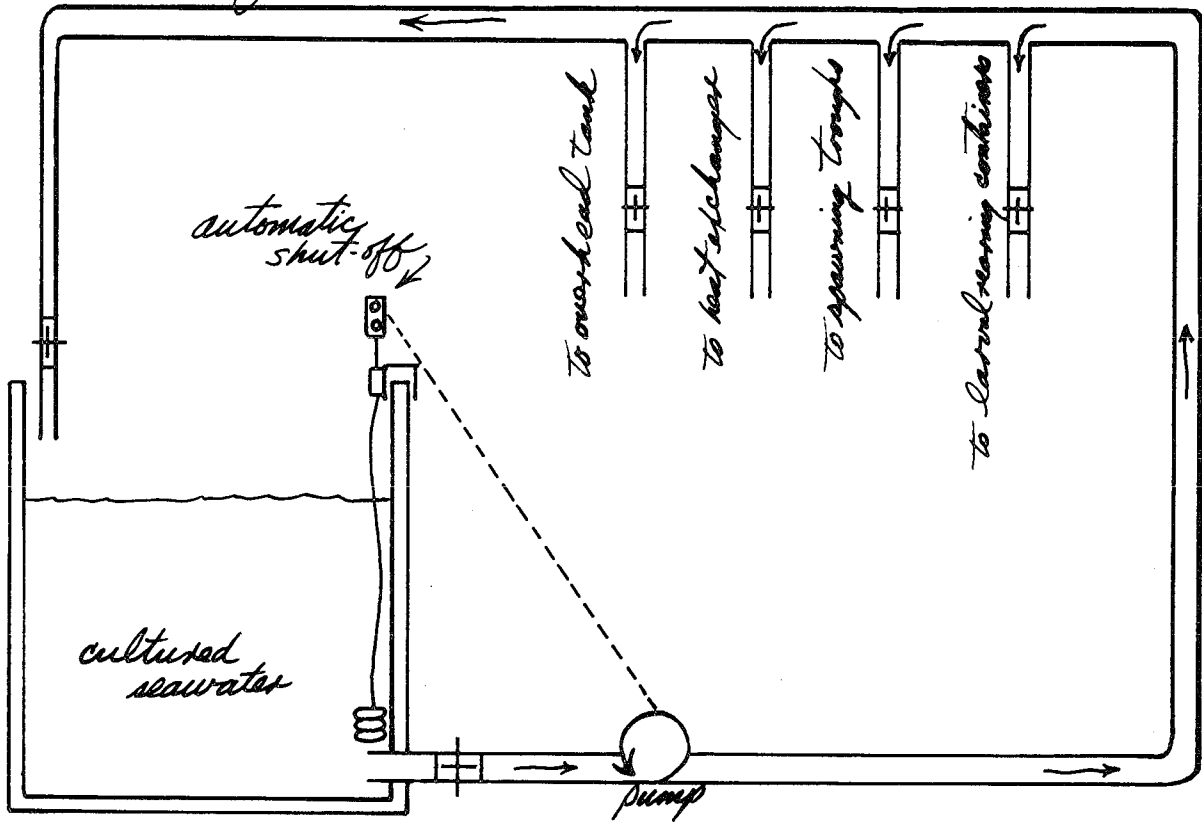 automatic
shut-off
to overhead tank
to heat exchanger
to spawning troughs
to larval rearing containers
cultured
seawater
pump